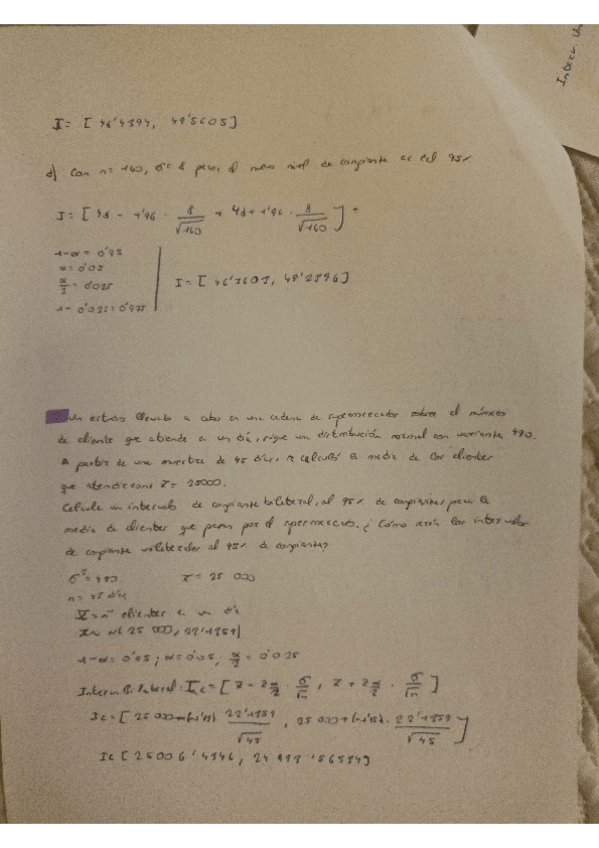 Interv. 
I = [46'4394, 49'5605]
d) Con n = 160, σ = 8 para el mismo nivel de confianza es del 95%
I = [48 - 1'96 · 8/√160 + 48 + 1'96 · 8/√160] =
1-α = 0'95
α = 0'05
α/2 = 0'025
1 - 0'025 = 0'975
I = [46'7603, 49'2396]
Un estudio llevado a cabo en una cadena de supermercados sobre el número
de clientes que atiende en un día, sigue una distribución normal con varianza 490.
A partir de una muestra de 45 días, se calculó la media de los clientes
que atendieron x̄ = 25000.
Calcule un intervalo de confianza bilateral, al 95% de confianza para la
media de clientes que pasan por el supermercado. ¿Cómo serían los intervalos
de confianza unilateral al 95% de confianza?
σ² = 490 x̄ = 25 000
n = 45 días
X = nº clientes en un día
X ~ N(25 000, 22'1359)
1-α = 0'95; α = 0'05; α/2 = 0'025
Interv. Bilateral: Ic = [x̄ - Zα/2 · σ/√n, x̄ + Zα/2 · σ/√n]
Ic = [25 000 - 22'1359/√45, 25 000 + 22'1359/√45]
Ic [25006'4